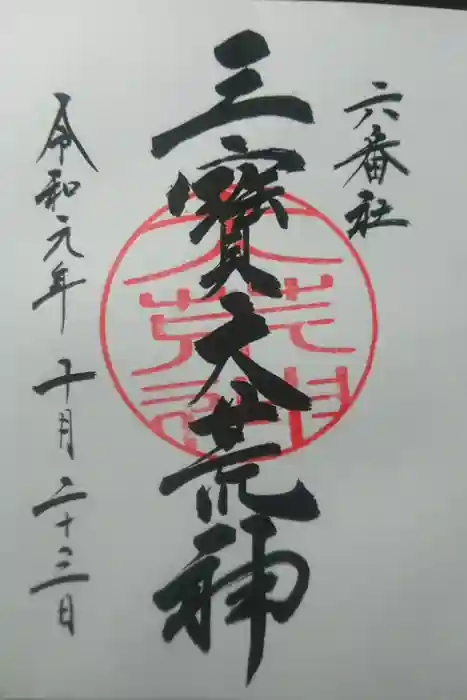 六番社
三寳大荒神
令和元年 十月二十三日